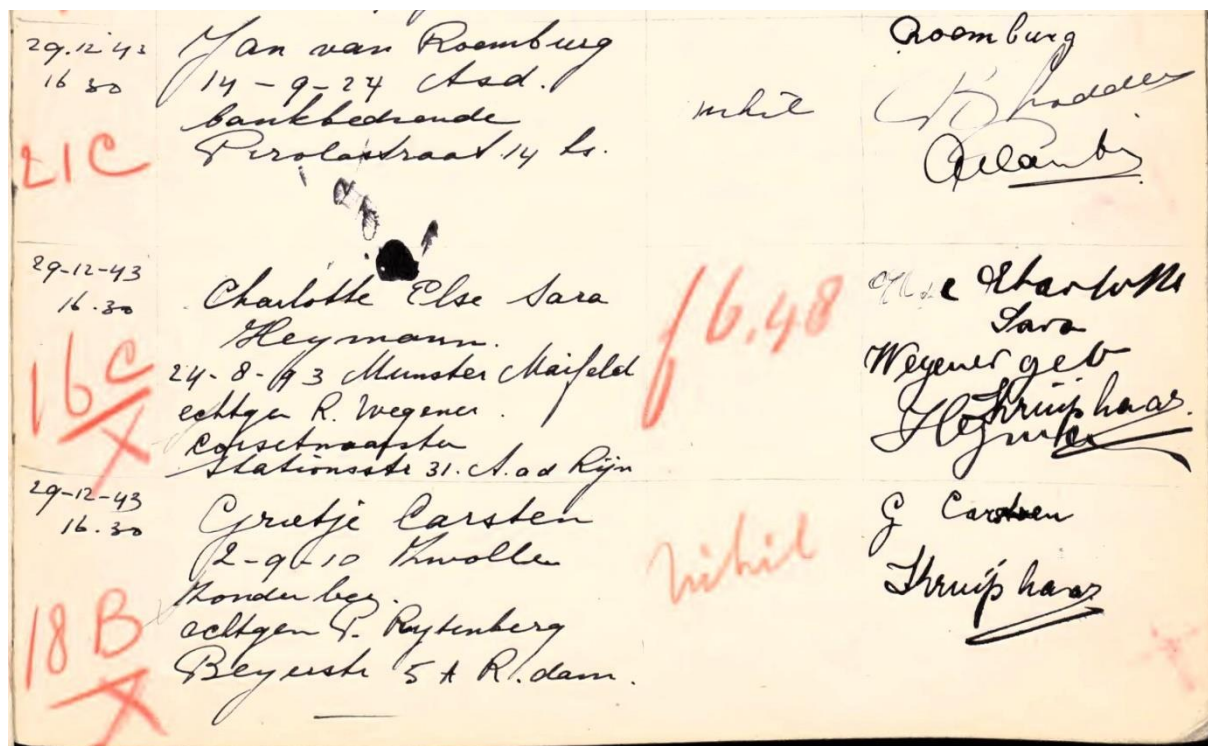 29.12.43
16 30
21C
Jan van Roomburg
14-9-24 Asd.
bankbediende
Pirolastraat 14 hs.
nihil
Roomburg
29-12-43
16.30
16C
X
Charlotte Else Sara
Heymann.
24-8-93 Munster Maifeld
echtgen R. Wegener.
corsetnaaister
Stationsstr 31. A. a d Rijn
f6.48
Else Charlotte
Sara
Wegener geb
Heymann
Kruiphaar.
29-12-43
16.30
18B
X
Grietje Carsten
2-9-10 Zwolle
zonder ber.
echtgen P. Ruytenberg
Beyerstr 5A R.dam.
nihil
G Carsten
Kruiphaar